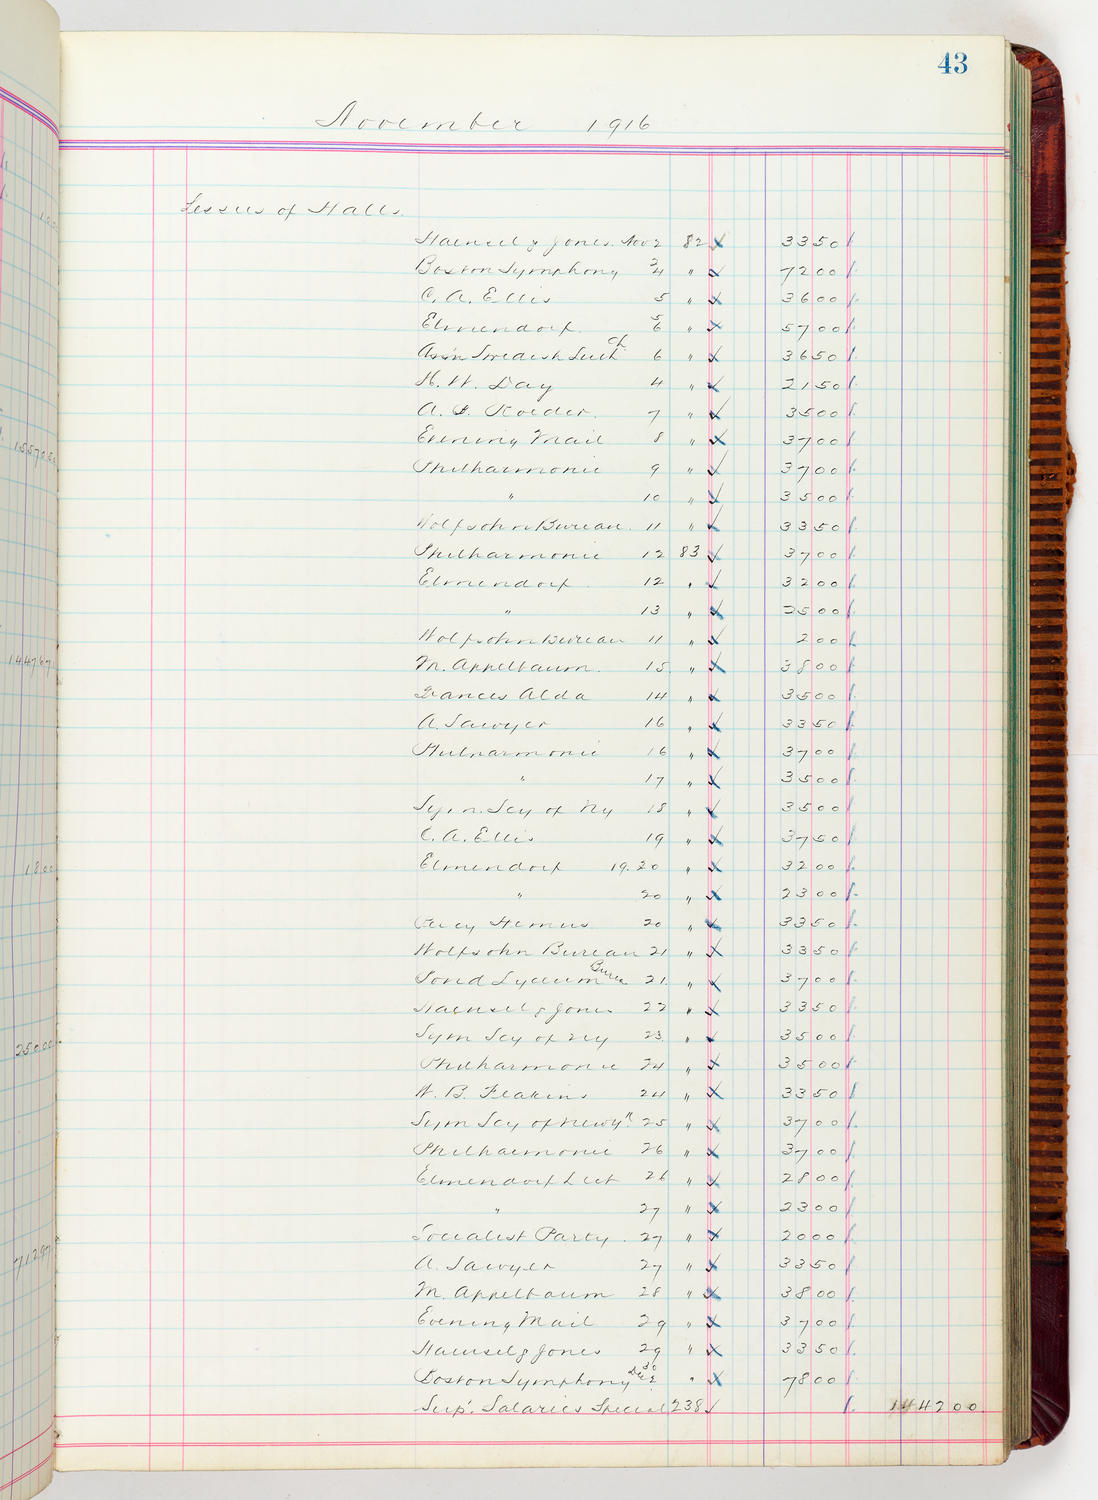 43
November 1916
Lessees of Halls.
Haensel & Jones. Nov 2 82 3350
Boston Symphony 3/4 " 7200
C. A. Ellis 5 " 3600
Elmendorf 5/6 " 5700
Ass'n Swedish Luth Ch 6 " 3650
H. W. Day 4 " 2150
A. Roeder. 7 " 3500
Evening Mail 8 " 3700
Philharmonic 9 " 3700
" 10 " 3500
Wolfsohn Bureau. 11 " 3350
Philharmonic 12 83 3700
Elmendorf 12 " 3200
" 13 " 2500
Wolfsohn Bureau 11 " 200
M. Appelbaum. 15 " 3800
Frances Alda 14 " 3500
A. Sawyer 16 " 3350
Philharmonic 16 " 3700
" 17 " 3500
Sym. Scy of Ny 18 " 3500
C. A. Ellis 19 " 3750
Elmendorf 19.20 " 3200
" 20 " 2300
Percy Hemus 20 " 3350
Wolfsohn Bureau 21 " 3350
Pond Lyceum Bureau 21 " 3700
Haensel & Jones 22 " 3350
Sym Scy of Ny 23 " 3500
Philharmonic 24 " 3500
W. B. Feakins 24 " 3350
Sym Scy of New Yk 25 " 3700
Philharmonic 26 " 3700
Elmendorf Lect 26 " 2800
" 27 " 2300
Socialist Party. 27 " 2000
A. Sawyer 27 " 3350
M. Appelbaum 28 " 3800
Evening Mail 29 " 3700
Haensel & Jones 29 " 3350
Boston Symphony 30 Dec 2 " 7800
Sup'. Salaries Special 238 144200
155705
144767
1800
25000
71297